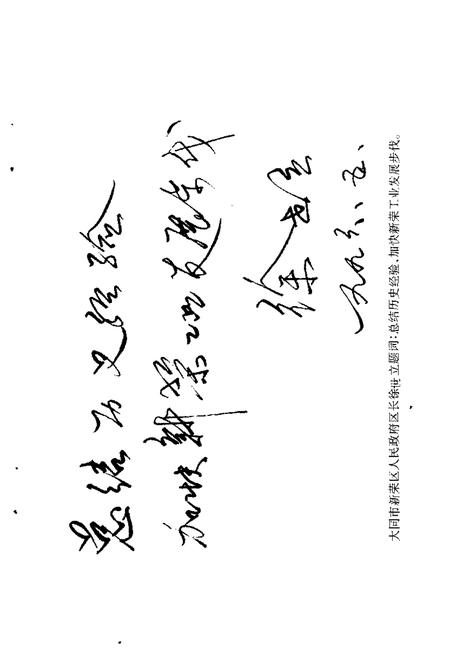 总结历史经验
加快新荣工业发展步伐
徐世立
一九九六、八、五、
大同市新荣区人民政府区长徐世立题词:总结历史经验,加快新荣工业发展步伐。